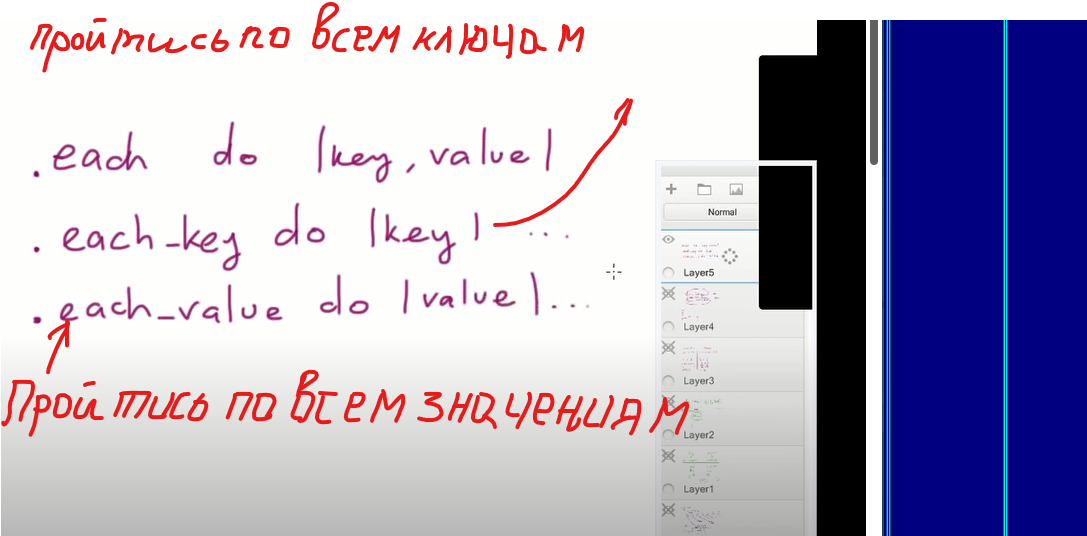 пройтись по всем ключам
.each do |key, value|
.each_key do |key| ...
.each_value do |value|...
Пройтись по всем значениям
Normal
Layer5
Layer4
Layer3
Layer2
Layer1